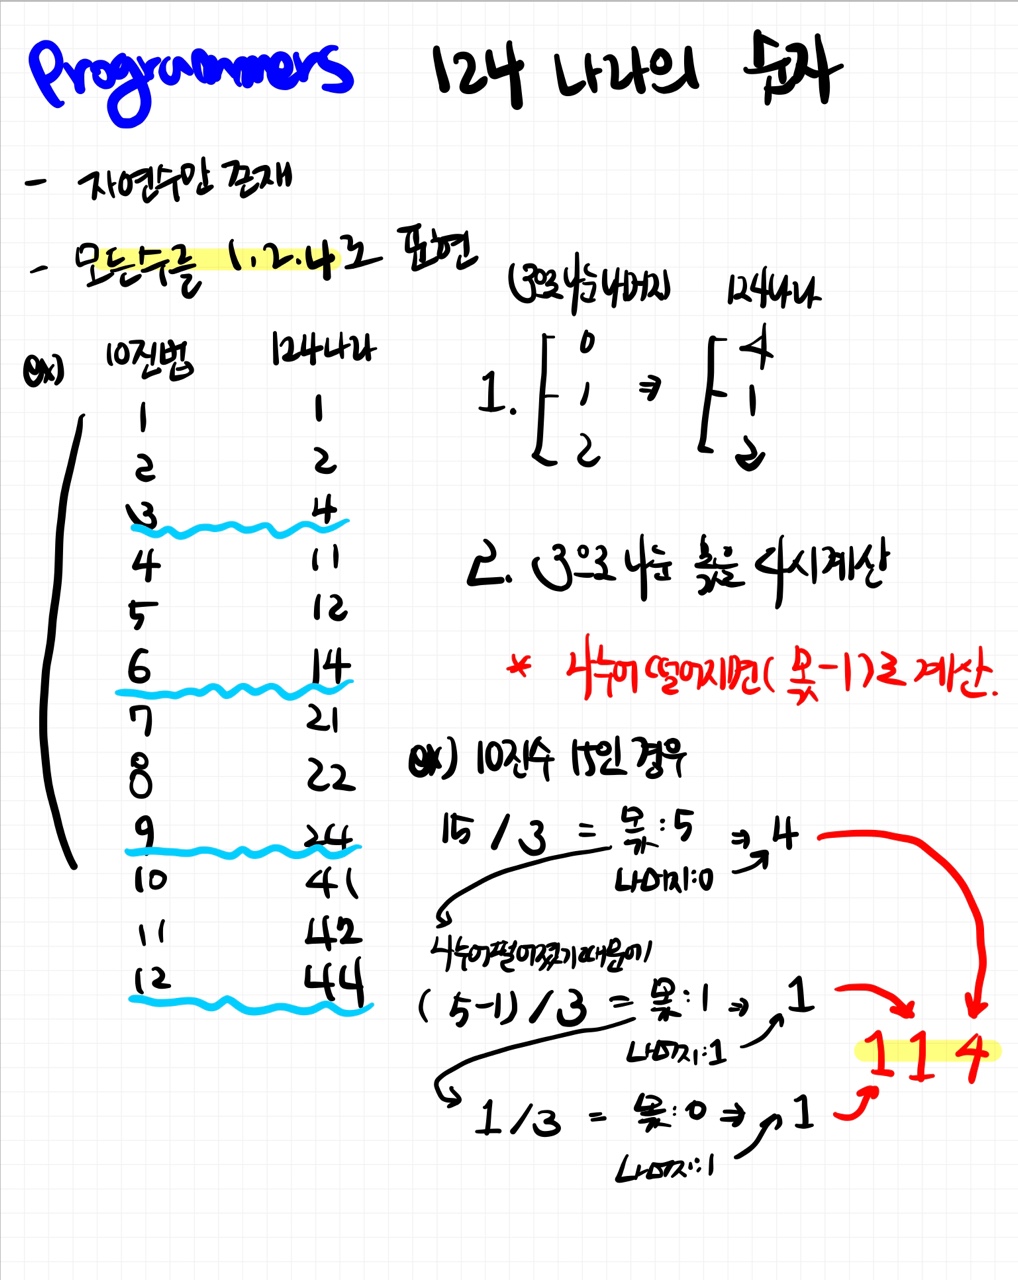 Programmers 124 나라의 숫자
- 자연수만 존재
- 모든수를 1.2.4로 표현
ex) 10진법 124나라
1 1
2 2
3 4
4 11
5 12
6 14
7 21
8 22
9 24
10 41
11 42
12 44
(3으로 나눈 나머지) 124나라
1. 0 1 2 ⇒ 4 1 2
2. 3으로 나눈 몫을 다시 계산
* 나누어 떨어지면 (몫-1)로 계산.
ex) 10진수 15인 경우
15 / 3 = 몫:5 ⇒ 4
나머지:0
나누어떨어졌기때문에
(5-1) / 3 = 몫:1 ⇒ 1
나머지:1
1 1 4
1 / 3 = 몫:0 ⇒ 1
나머지:1